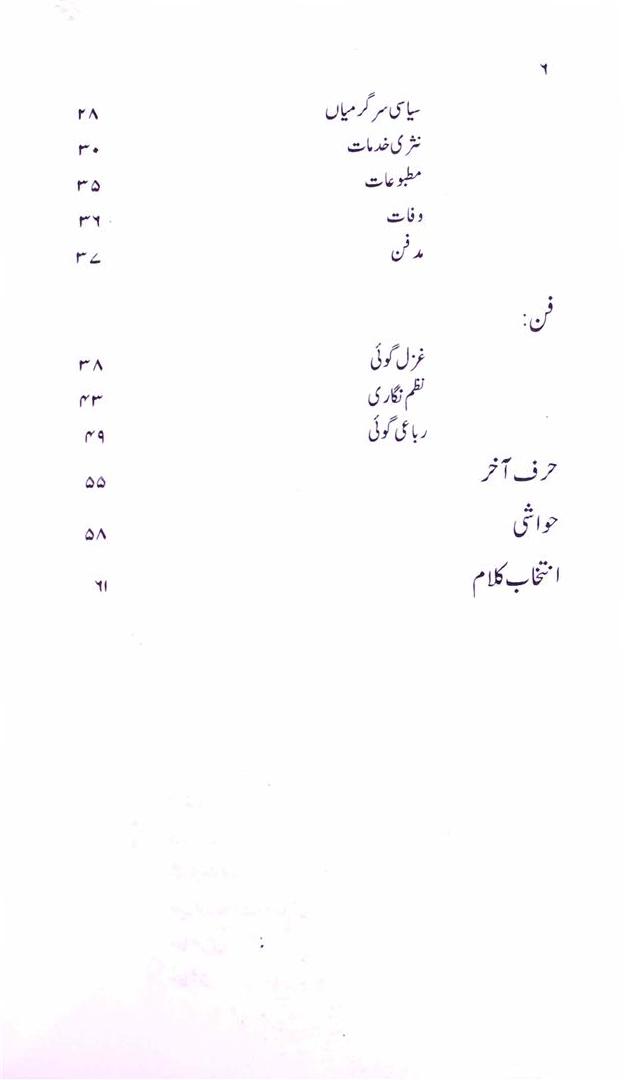 ۶
سیاسی سرگرمیاں ۲۸
نثری خدمات ۳۰
مطبوعات ۳۵
وفات ۳۶
مدفن ۳۷
فن:
غزل گوئی ۳۸
نظم نگاری ۴۳
رباعی گوئی ۴۹
حرف آخر ۵۵
حواشی ۵۸
انتخاب کلام ۶۱